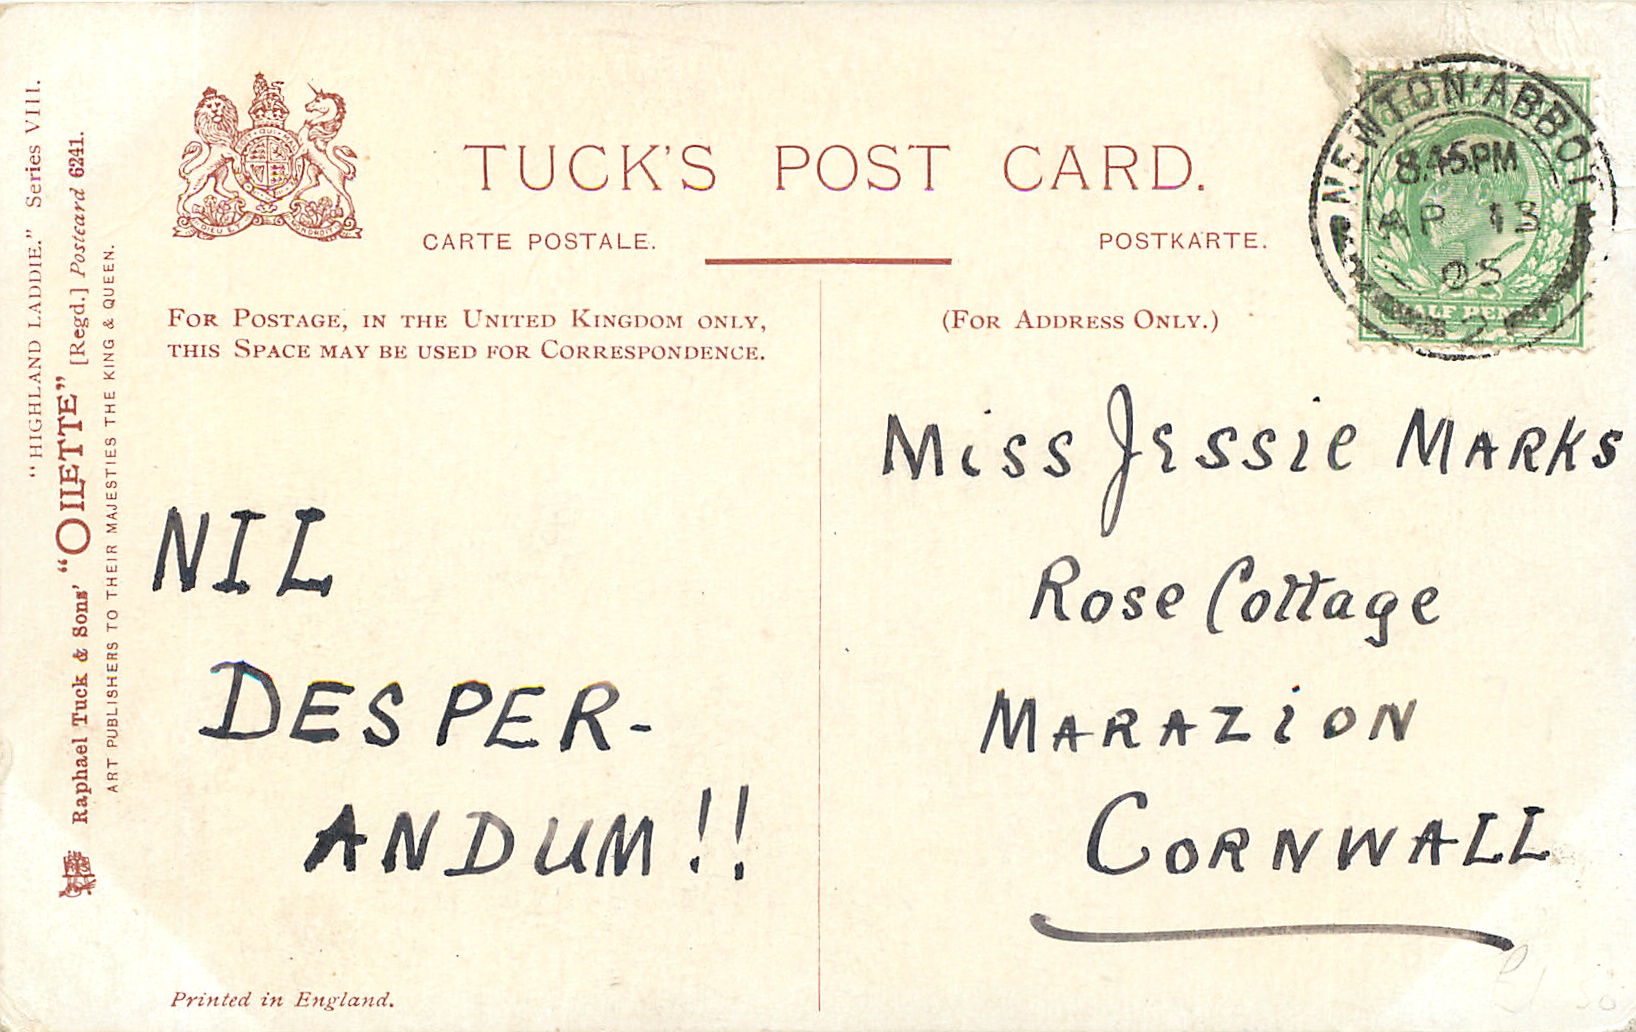 "HIGHLAND LADDIE." Series VIII.
Raphael Tuck & Sons' "OILETTE" [Regd.] Postcard 6241.
ART PUBLISHERS TO THEIR MAJESTIES THE KING & QUEEN.
TUCK'S POST CARD.
CARTE POSTALE.
POSTKARTE.
FOR POSTAGE, IN THE UNITED KINGDOM ONLY,
THIS SPACE MAY BE USED FOR CORRESPONDENCE.
(FOR ADDRESS ONLY.)
NEWTON·ABBOT
8.45PM
AP 13
05
2
HALF PENNY
NIL
DESPER-
ANDUM!!
Miss Jessie MARKS
Rose Cottage
MARAZION
CORNWALL
Printed in England.